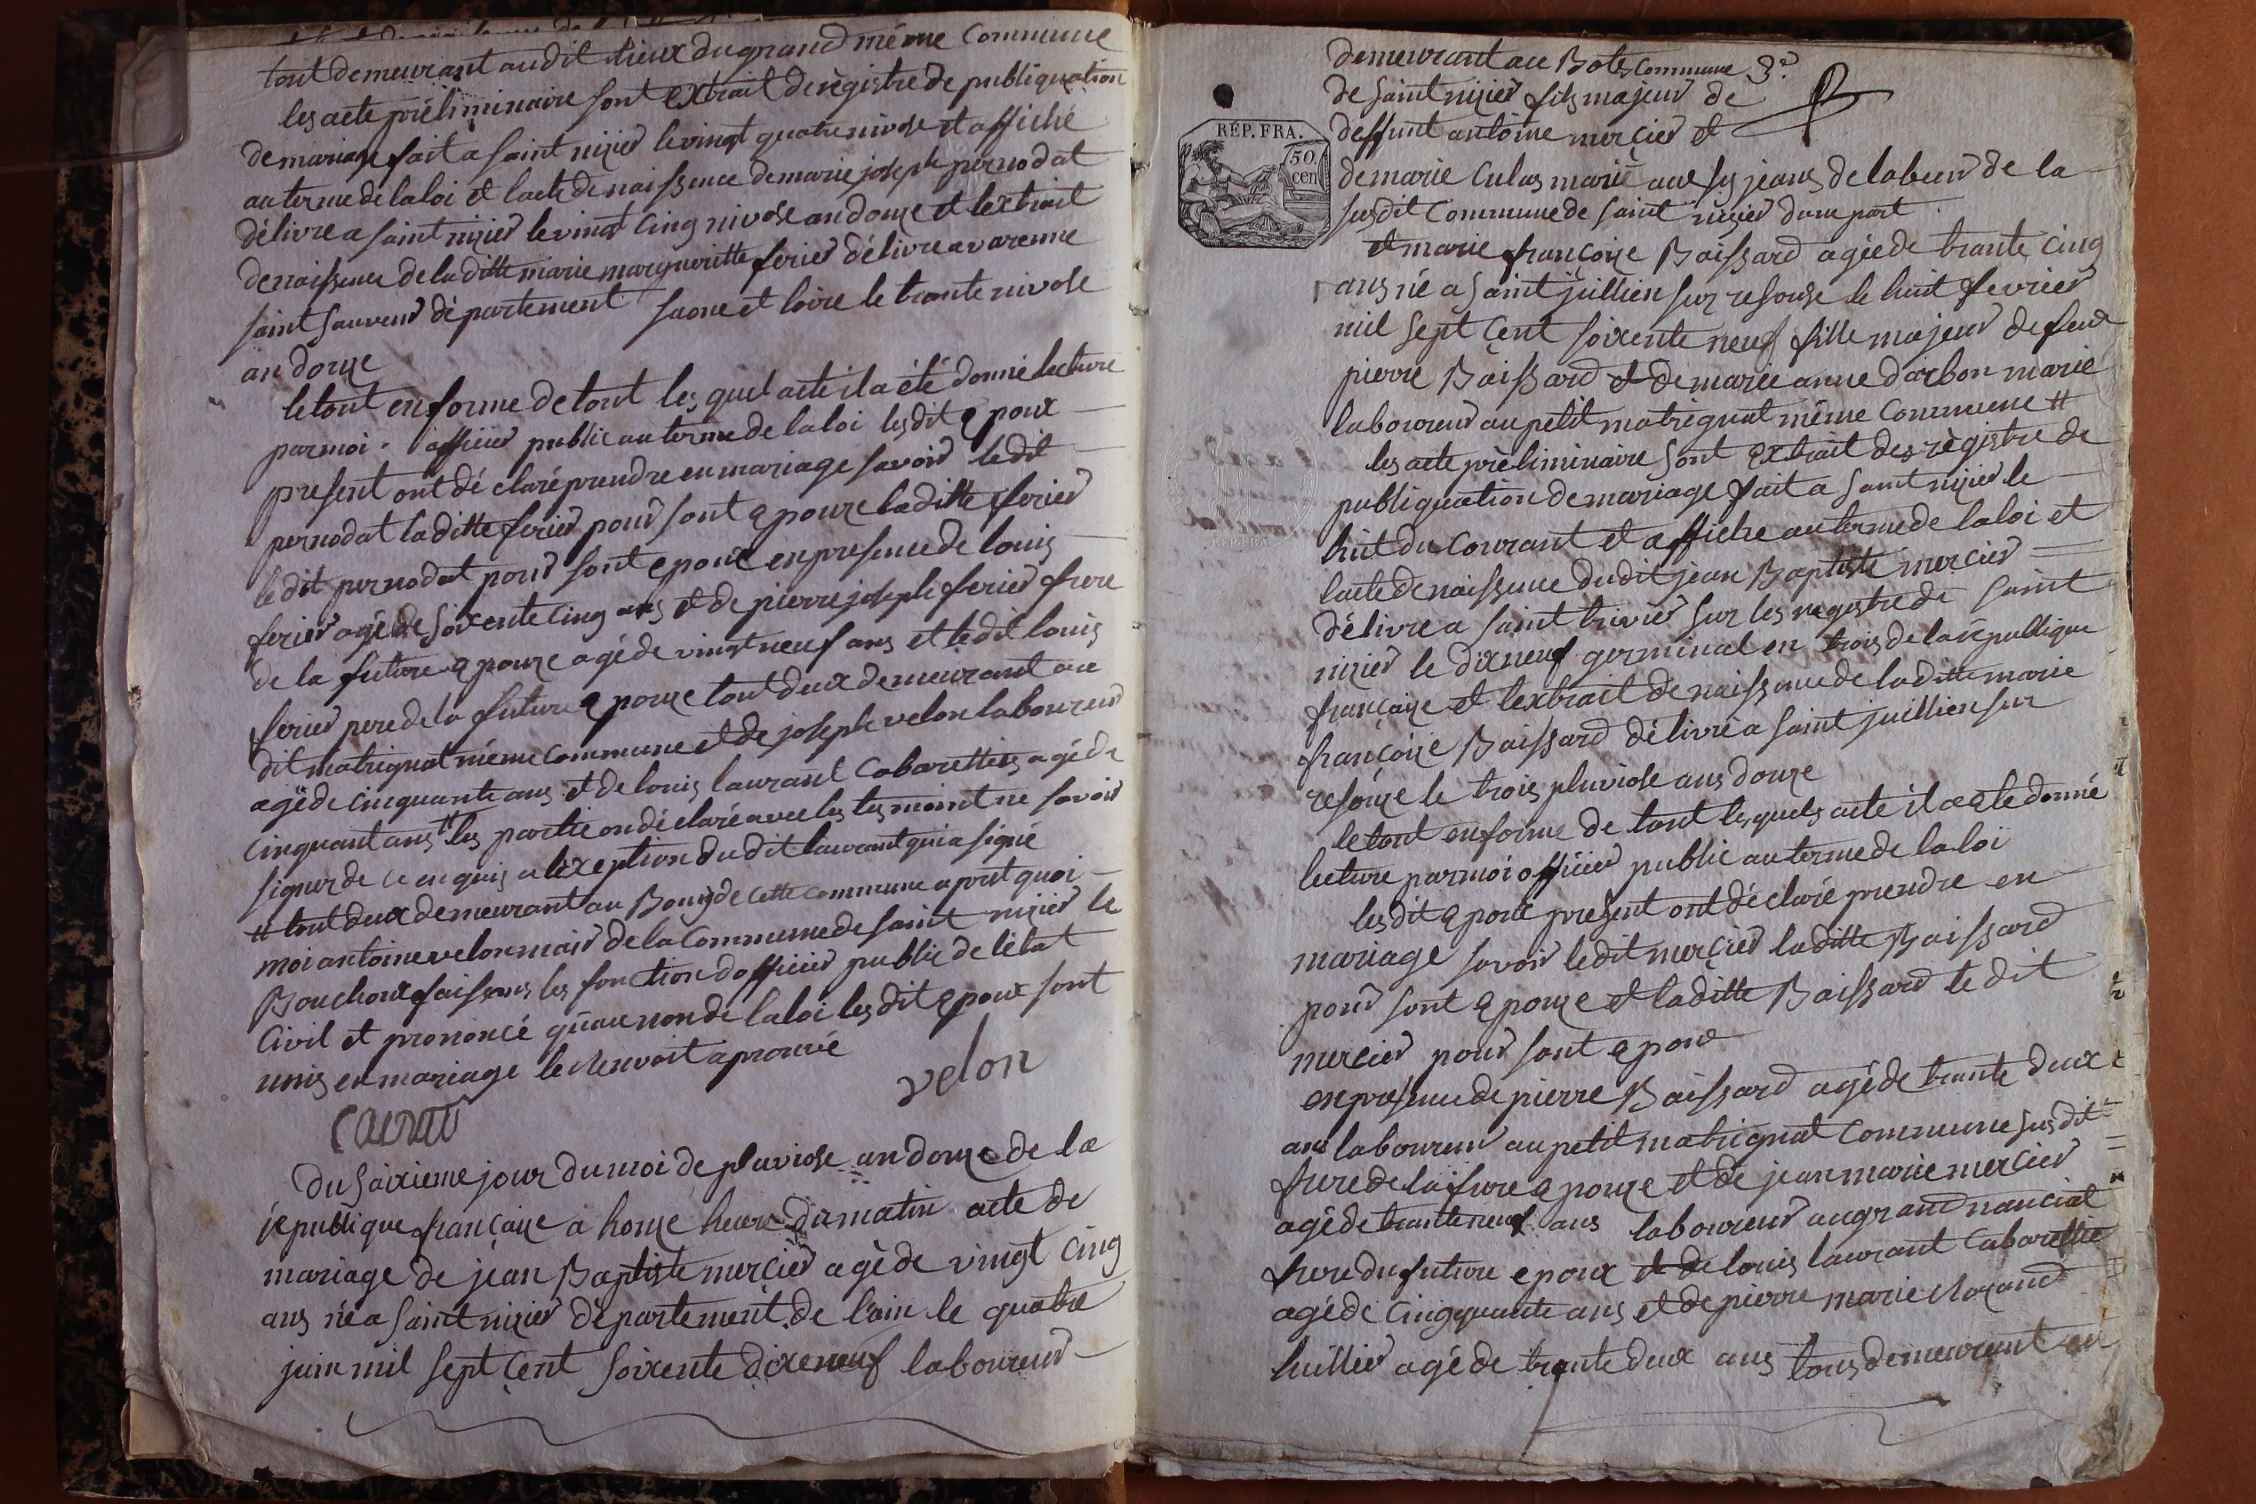 tout demeurant audit lieux du grand même Commune
les acte préliminaire sont extrait de régistre de publiquation
de mariage fait a saint nizier le vingt quatre nivose et affiché
au terme de la loi et lacte de naissance de marie joseph pernodat
délivre a saint nizier le vingt cinq nivose an douze et lextrait
de naissance de la ditte marie margueritte ferier délivre a varenne
saint sauveur département saone et loire le trante nivose
an douze
le tout en forme de tout les quel acte il a été donné lecture
par moi officier public au terme de la loi les dit epoux
present ont dé claré prendre en mariage savoir le dit
pernodat la ditte ferier pour sont epouze la ditte ferier
le dit pernodat pour sont epoux en presence de louis
ferier agé de soixente cinq ans et de pierre joseph ferier frere
de la future epouze agé de vingt neuf ans et le dit louis
ferier pere de la future epouze tout deux demeurant au
dit matrignat même commune et de joseph velon laboureur
agé de cinquante ans et de louis laurant Cabarettier agé de
cinquant ans # les partie on dé claré avec les tesmoint ne savoir
signer de ce enquis a lexeption du dit laurant qui a signé
# tout deux demeurant au Bourg de cette commune apret quoi
moi antoine velon mair de la Commune de saint nizier le
Bouchoux faissans les fonction dofficier public de létat
Civil et prononcé quau non de la loi les dit epoux sont
unis en mariage le renvoit aprouvé
velon
laurant
Du saixieme jour du moi de pluviose an douze de la
républiquue françaize a honze heure du matin acte de
mariage de jean Baptiste mercier agé de vingt cinq
ans né a saint nizier département de l'ain le quatre
juin mil sept cent soixente dixeneuf laboureur
demeurant au Bots commune 3e
de saint nizier fils majeur de
deffunt antoine mercier et
RÉP. FRA.
50
cen
de marie Culas marié avec jeane de labeur de la
susdit Commune de saint nizier dune part
et marie françoize Baissard agée de trante cinq
ans né a saint juillien sur resouse le huit fevrier
mil sept cent soixente neuf fille majeur de feux
pierre Baissard et de marie anne darbon marie
laboureur au petit matrignat même Commune #
les acte préliminaire sont extrait des régistre de
publiquation de mariage fait a saint nizier le
huit du courant et affiche au terme de la loi et
lacte de naissence du dit jean Baptiste mercier
délivre a saint trivier sur les registre de saint
nizier le dixneuf germinal en trois de la république
françaize et lextrait de naissance de la ditte marie
françoize Baissard délivré a saint juillien sur
resouze le trois pluviose ans douze
le tout en forme de tout lesquels acte il a ete donné
lecture par moi officier public au terme de la loi
les dit epoux present ont déclaré prendre en
mariage savoir le dit mercier la ditte Baissard
pour sont epouze et la ditte Baissard le dit
mercier pour sont epoux
en presence de pierre Baissard agé de trante deux
ans laboureur au petit matrignat Commune susdit
frere de la fure epouze et de jean marie mercier
agé de trante neuf ans laboureur au grand nancial
frere du future epoux et de louis laurant Cabarettie
agé de cinqquante ans et de pierre marie
huillier agé de trante deux ans tous demeurant au